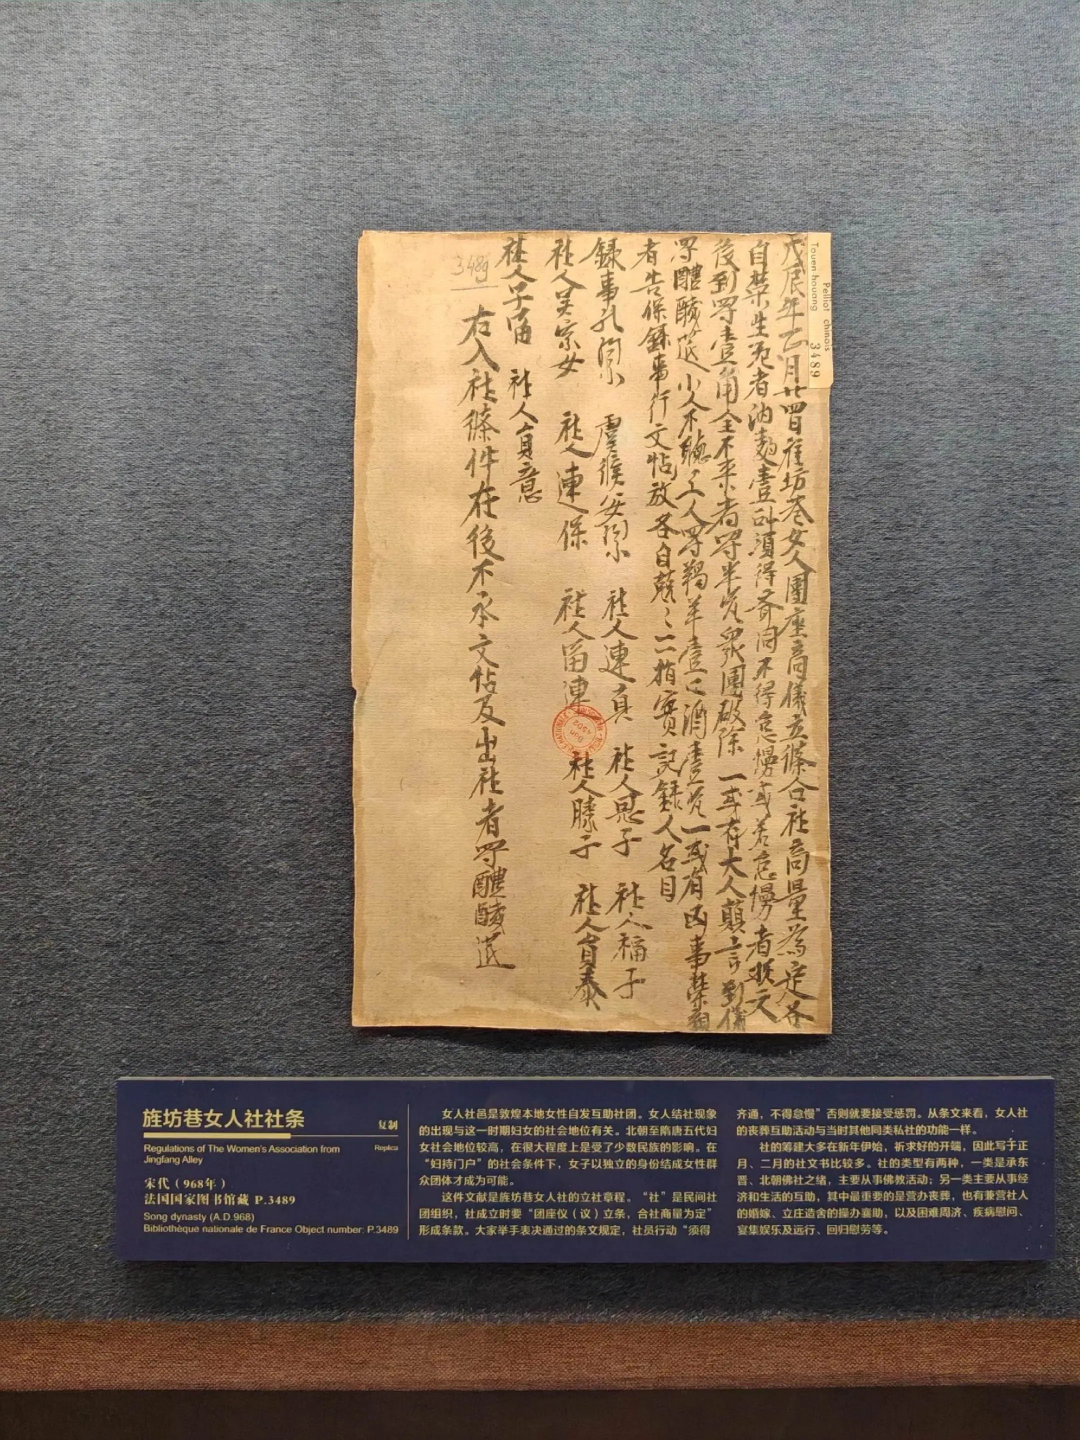 Pelliot chinois
Touen-houang 3489
戊辰年正月廿四日旌坊巷女人團座商儀立條合社商量爲定各
自榮生死者納麵壹㪷須得齊同不得怠慢或若怠慢者捉二人
後到罸壹角全不來者罸半瓮衆團破除一或有大人顛言到儀
罸醴醲筵小人不聽上人罸羯羊壹口酒壹瓮一或有凶事榮親
者告保錄事行文帖放各自兢々一一指實記錄人名目
錄事孔闍梨 虞候安闍梨 社人連真 社人恩子 社人福子
社人吴家女 社人連保 社人富連 社人滕子 社人員泰
社人子富 社人員意
右入社條件在後不承文帖及出社者罸醴醲筵
3489
旌坊巷女人社社条
复制
Regulations of The Women's Association from
Jingfang Alley
Replica
宋代（968年）
法国国家图书馆藏 P.3489
Song dynasty (A.D.968)
Bibliothèque nationale de France Object number: P.3489
女人社邑是敦煌本地女性自发互助社团。女人结社现象
的出现与这一时期妇女的社会地位有关。北朝至隋唐五代妇
女社会地位较高，在很大程度上是受了少数民族的影响。在
“妇持门户”的社会条件下，女子以独立的身份结成女性群
众团体才成为可能。
这件文献是旌坊巷女人社的立社章程。“社”是民间社
团组织，社成立时要“团座仪（议）立条，合社商量为定”
形成条款。大家举手表决通过的条文规定，社员行动“须得
齐通，不得怠慢”否则就要接受惩罚。从条文来看，女人社
的丧葬互助活动与当时其他同类私社的功能一样。
社的筹建大多在新年伊始，祈求好的开端，因此写于正
月、二月的社文书比较多。社的类型有两种，一类是承东
晋、北朝佛社之绪，主要从事佛教活动；另一类主要从事经
济和生活的互助，其中最重要的是营办丧葬，也有兼营社人
的婚嫁、立庄造舍的操办襄助，以及困难周济、疾病慰问、
宴集娱乐及远行、回归慰劳等。